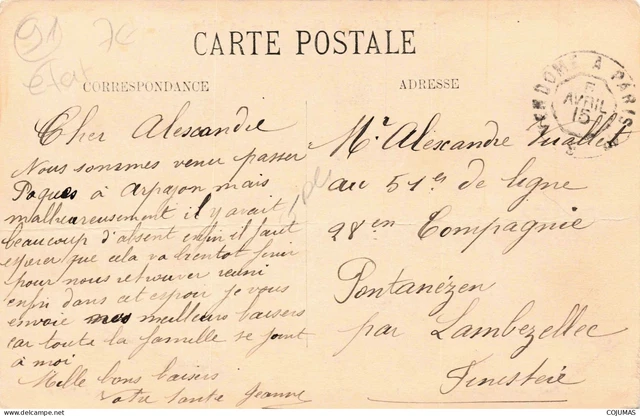 91
7€
état
CARTE POSTALE
CORRESPONDANCE
ADRESSE
VENDOME A PARIS
5
AVRIL
15
Cher Alexandre
Nous sommes venu passer
Paques à Arpajon mais
malheureusement il y avait
beaucoup d'absent enfin il faut
esperer que cela va bientot finir
pour nous retrouver reuni
enfin dans cet espoir je vous
envoie mes meilleurs baisers
car toute la famille se joint
à moi
Mille bons baisers
votre tante Jeanne
Mr Alexandre
au 51e de ligne
28 en Compagnie
Pontanézen
par Lambezellec
Finistère
COJUMAS